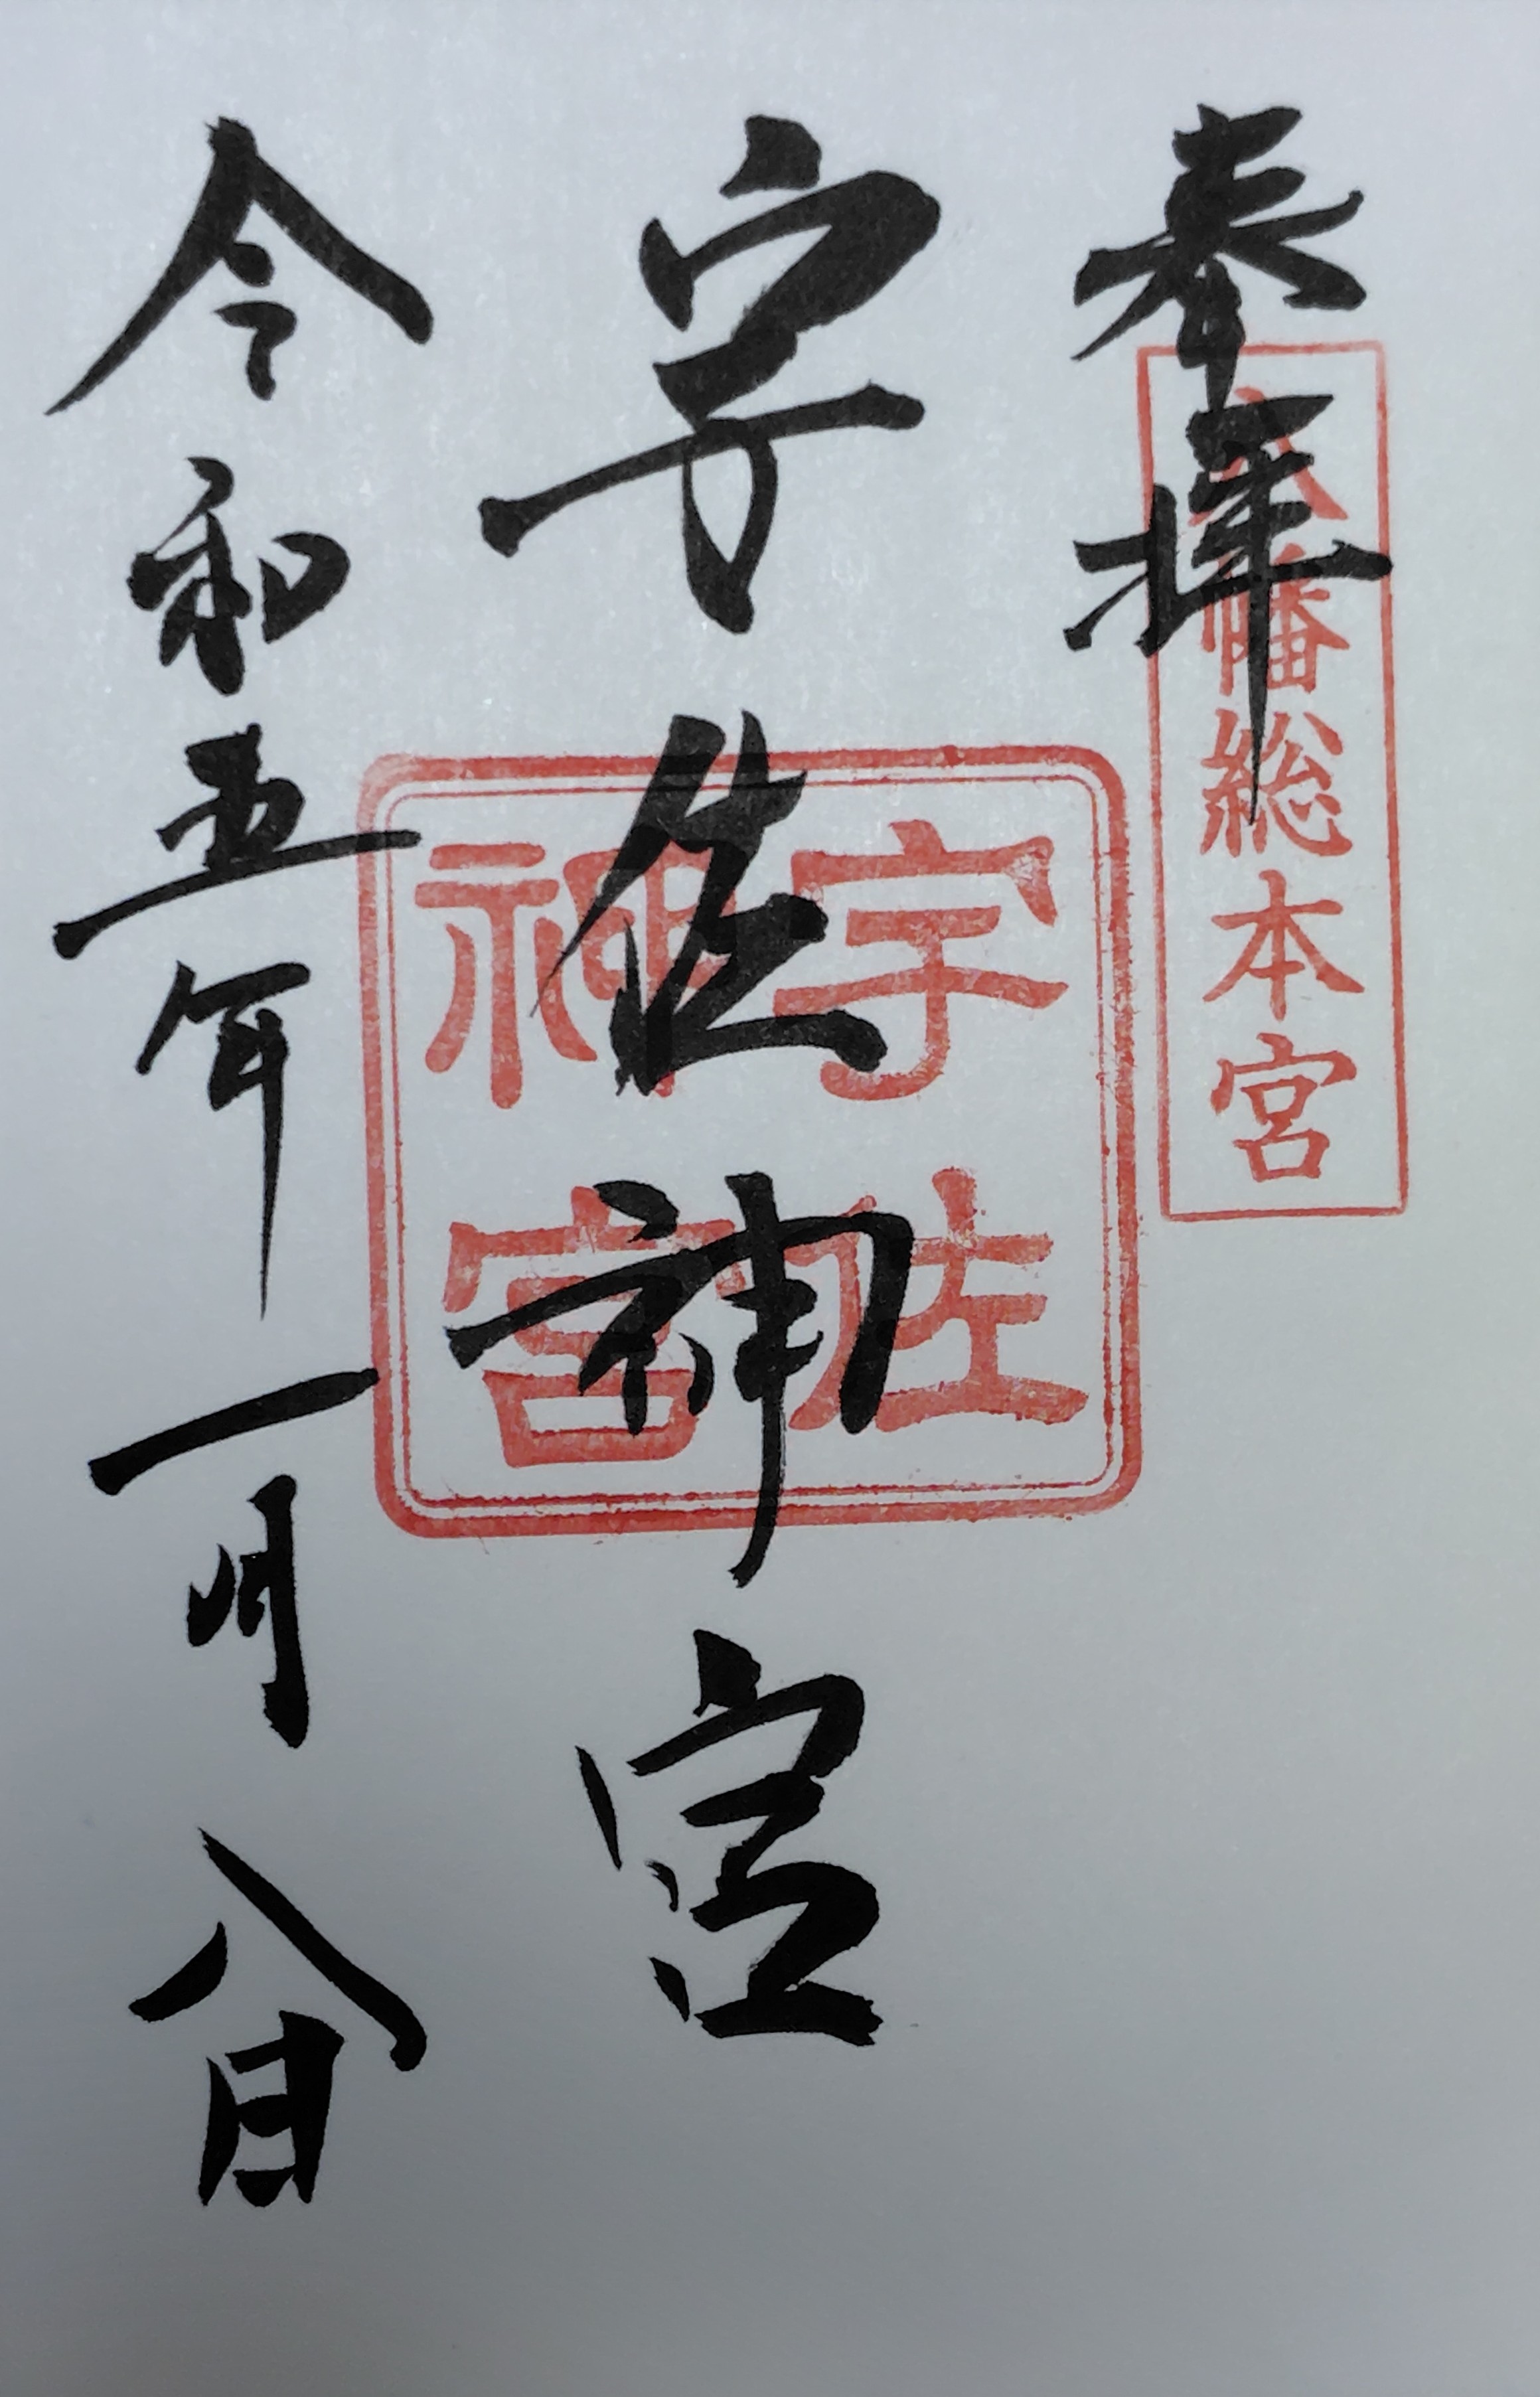 奉拝
八幡総本宮
宇佐神宮
宇佐
神宮
令和五年一月八日